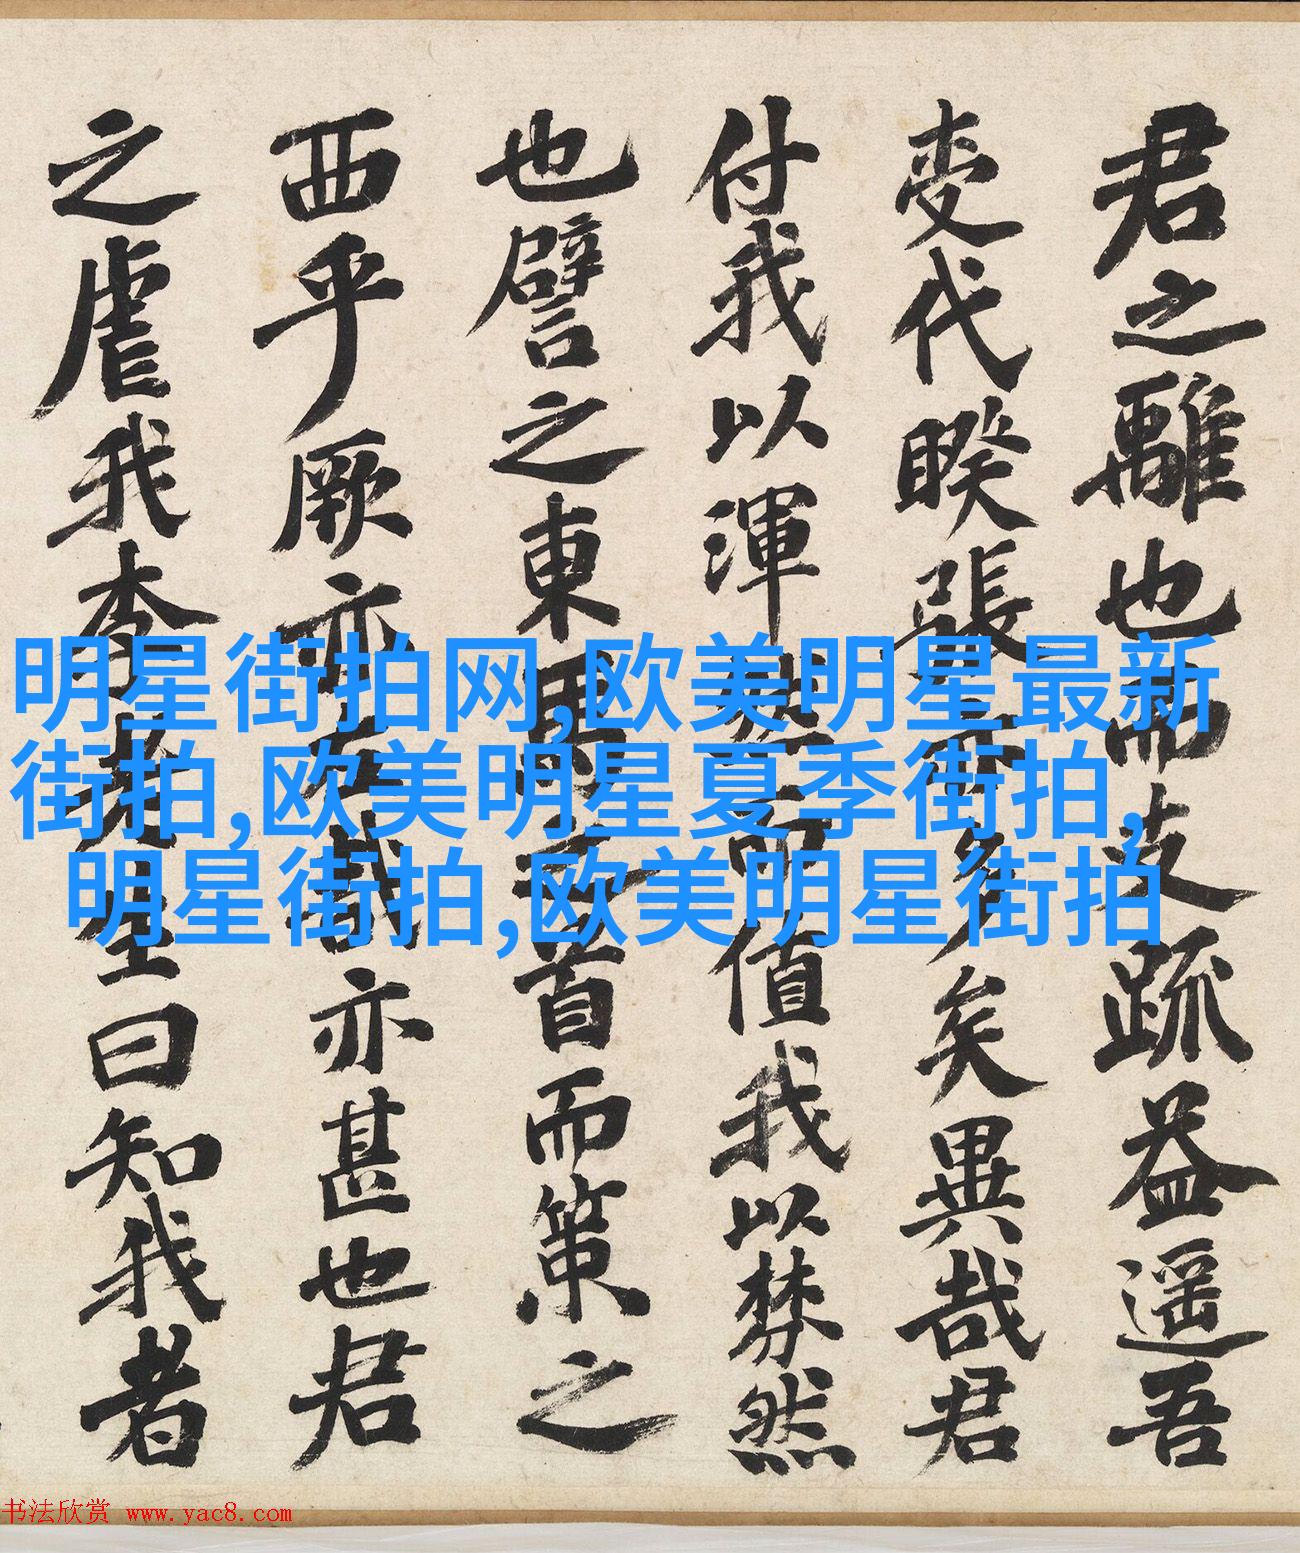 君之離也而支疏益遥吾
代暌張矣異哉君
付我以渾然而值我以棼然
也譬之東馬之首而策之
西乎厥亦哉亦甚也君
之虐我李生曰知我者
明星街拍网,欧美明星最新
街拍,欧美明星夏季街拍,
明星街拍,欧美明星街拍
书法欣赏 www.yac8.com